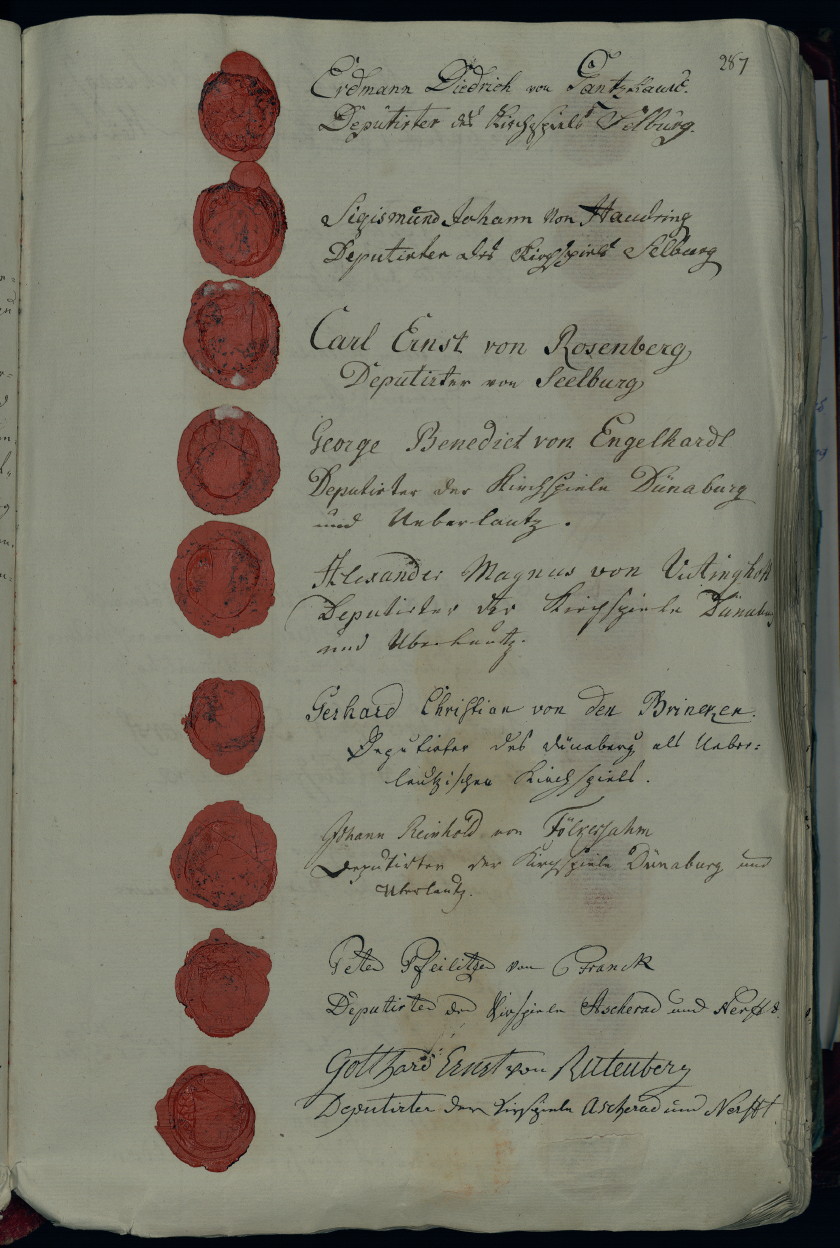 287
Erdmann Diedrich von Gantzkauw.
Deputirter des Kirchspiels Selburg.
Sigismund Johann von Haudring
Deputirter des Kirchspiels Selburg
Carl Ernst von Rosenberg
Deputirter von Seelburg
George Benedict von Engelhardt
Deputirter der Kirchspiele Dünaburg
und Ueberlautz.
Alexander Magnus von Vietinghoff
Deputirter der Kirchspiele Dünaburg
und Uberlautz.
Gerhard Christian von den Brincken.
Deputirter des Dünaburg als Ueber=
lautzischen Kirchspiels.
Johann Reinhold von Fölckersahm
Deputirter der Kirchspiele Dünaburg und
Uberlautz.
Peter Pfeilitzer von Franck
Deputirter der Kirspiele Ascherad und Nerfft.
Gotthard Ernst von Rutenberg
Deputirter der Kirspiele Ascherad und Nerfft.